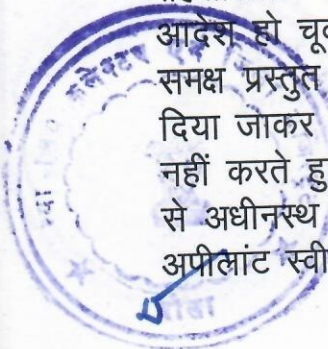 आदेश हो चूव
समक्ष प्रस्तुत
दिया जाकर
नहीं करते हु
से अधीनस्थ
अपीलांट स्वी
कलेक्टर